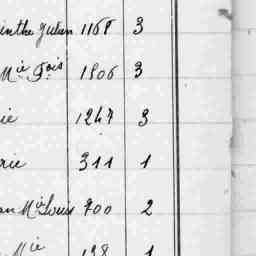 inthe Julien 1168 3
Mie Fois 1806 3
ie 1247 3
rie 311 1
an Mie Louis 700 2
Mie 138 1